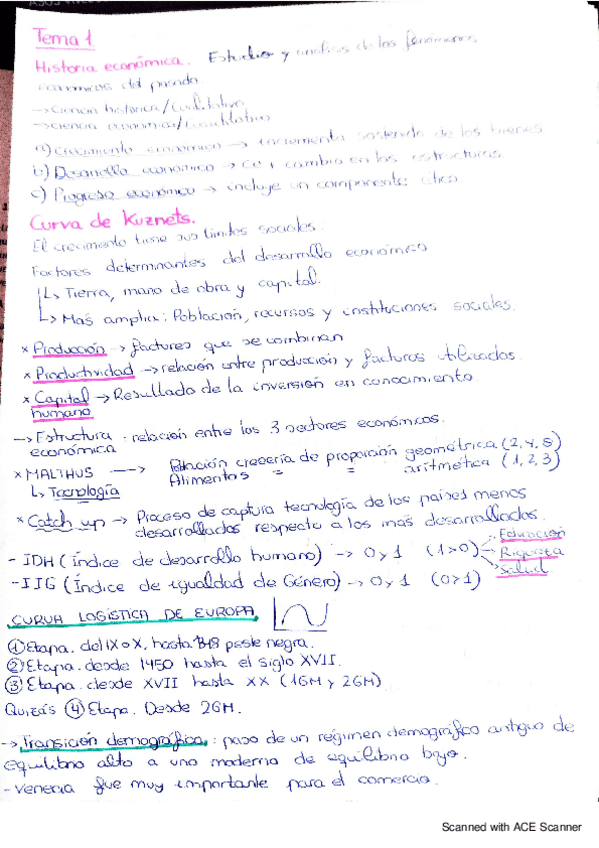 Tema 1
Historia económica. Estudio y análisis de los fenómenos
económicos del pasado
→ Ciencia histórica/Cualitativo
→ Ciencia económica/Cuantitativo
a) Crecimiento económico → incremento sostenido de los bienes
b) Desarrollo económico → CE + cambio en las estructuras
c) Progreso económico → incluye un componente ético
Curva de Kuznets.
El crecimiento tiene sus límites sociales.
Factores determinantes del desarrollo económico
↳ Tierra, mano de obra y capital.
↳ Más amplia: Población, recursos y instituciones sociales.
× Producción → factores que se combinan
× Productividad → relación entre producción y factores utilizados.
× Capital → Resultado de la inversión en conocimiento
humano
→ Estructura : relación entre los 3 sectores económicos.
económica
× MALTHUS ---→ Población crecería de proporción geométrica (2, 4, 8)
Alimentos = = aritmética (1, 2, 3)
↳ Tecnología
× Catch up → Proceso de captura tecnología de los países menos
desarrollados respecto a los más desarrollados.
- IDH (Índice de desarrollo humano) → 0 y 1 (1>0) Educación
Riqueza
Salud
- IIG (Índice de igualdad de Género) → 0 y 1 (0>1)
CURVA LOGÍSTICA DE EUROPA
① Etapa. del IX o X, hasta 1348 peste negra.
② Etapa. desde 1450 hasta el siglo XVII.
③ Etapa. desde XVII hasta XX (1GM y 2GM)
Quizás ④ Etapa. Desde 2GM.
→ Transición demográfica : paso de un régimen demográfico antiguo de
equilibrio alto a uno moderno de equilibrio bajo.
- Venecia fue muy importante para el comercio.
Scanned with ACE Scanner